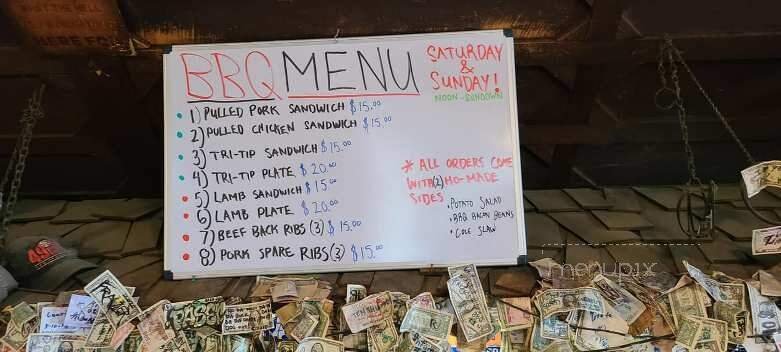 BBQ MENU
SATURDAY
&
SUNDAY!
NOON-SUNDOWN
1) PULLED PORK SANDWICH $15.00
2) PULLED CHICKEN SANDWICH $15.00
3) TRI-TIP SANDWICH $15.00
4) TRI-TIP PLATE $20.00
5) LAMB SANDWICH $15.00
6) LAMB PLATE $20.00
7) BEEF BACK RIBS (3) $15.00
8) PORK SPARE RIBS (3) $15.00
* ALL ORDERS COME
WITH (2) HO-MADE
SIDES
• POTATO SALAD
• BBQ BACON BEANS
• COLE SLAW
menupix